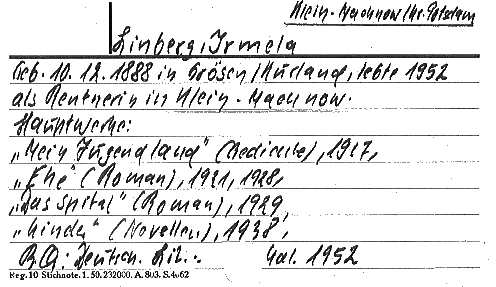 Klein-Machnow/Kr. Potsdam
Linberg, Irmela
Geb. 10. 12. 1888 in Grösen/Kurland, lebte 1952
als Rentnerin in Klein-Machnow.
Hauptwerke:
„Mein Jugendland" (Gedichte), 1917,
„Ehe" (Roman), 1921, 1928,
„Das Spital" (Roman), 1929,
„Kinder" (Novellen), 1938,
BQ: Deutsch. Lit. 1952
Reg. 10 Stichnote. 1. 50. 232000. A. 803. S. 4062